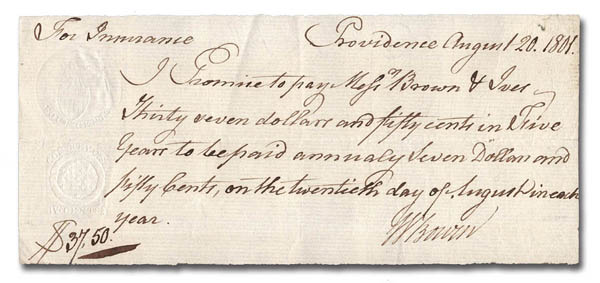 For Insurance Providence August 20. 1801.
I Promise to pay Mess.rs Brown & Ives
Thirty seven dollars and fifty cents in Five
Years to be paid annualy Seven Dollars and
fifty Cents, on the twentieth day of August in each
year.
$37,50. W Bowen